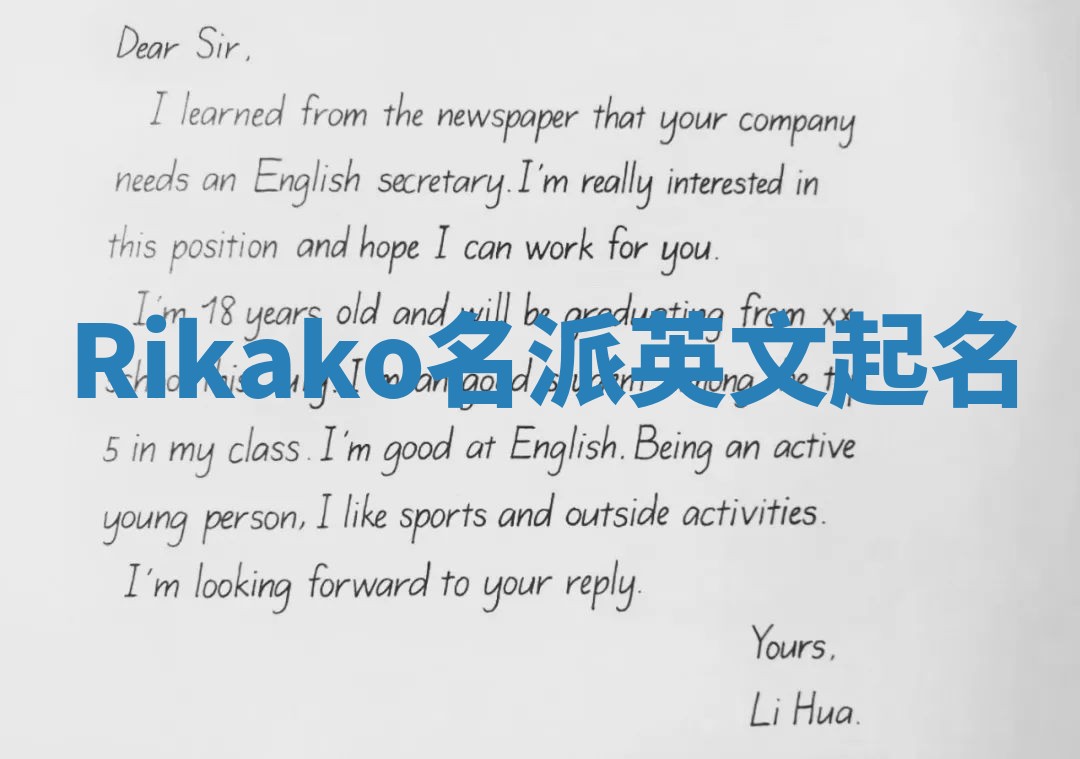 Dear Sir,
I learned from the newspaper that your company
needs an English secretary. I'm really interested in
this position and hope I can work for you.
I'm 18 years old and will be graduating from xx
Rikako名派英文起名
school this July. I'm an good student among the top
5 in my class. I'm good at English. Being an active
young person, I like sports and outside activities.
I'm looking forward to your reply.
Yours,
Li Hua.